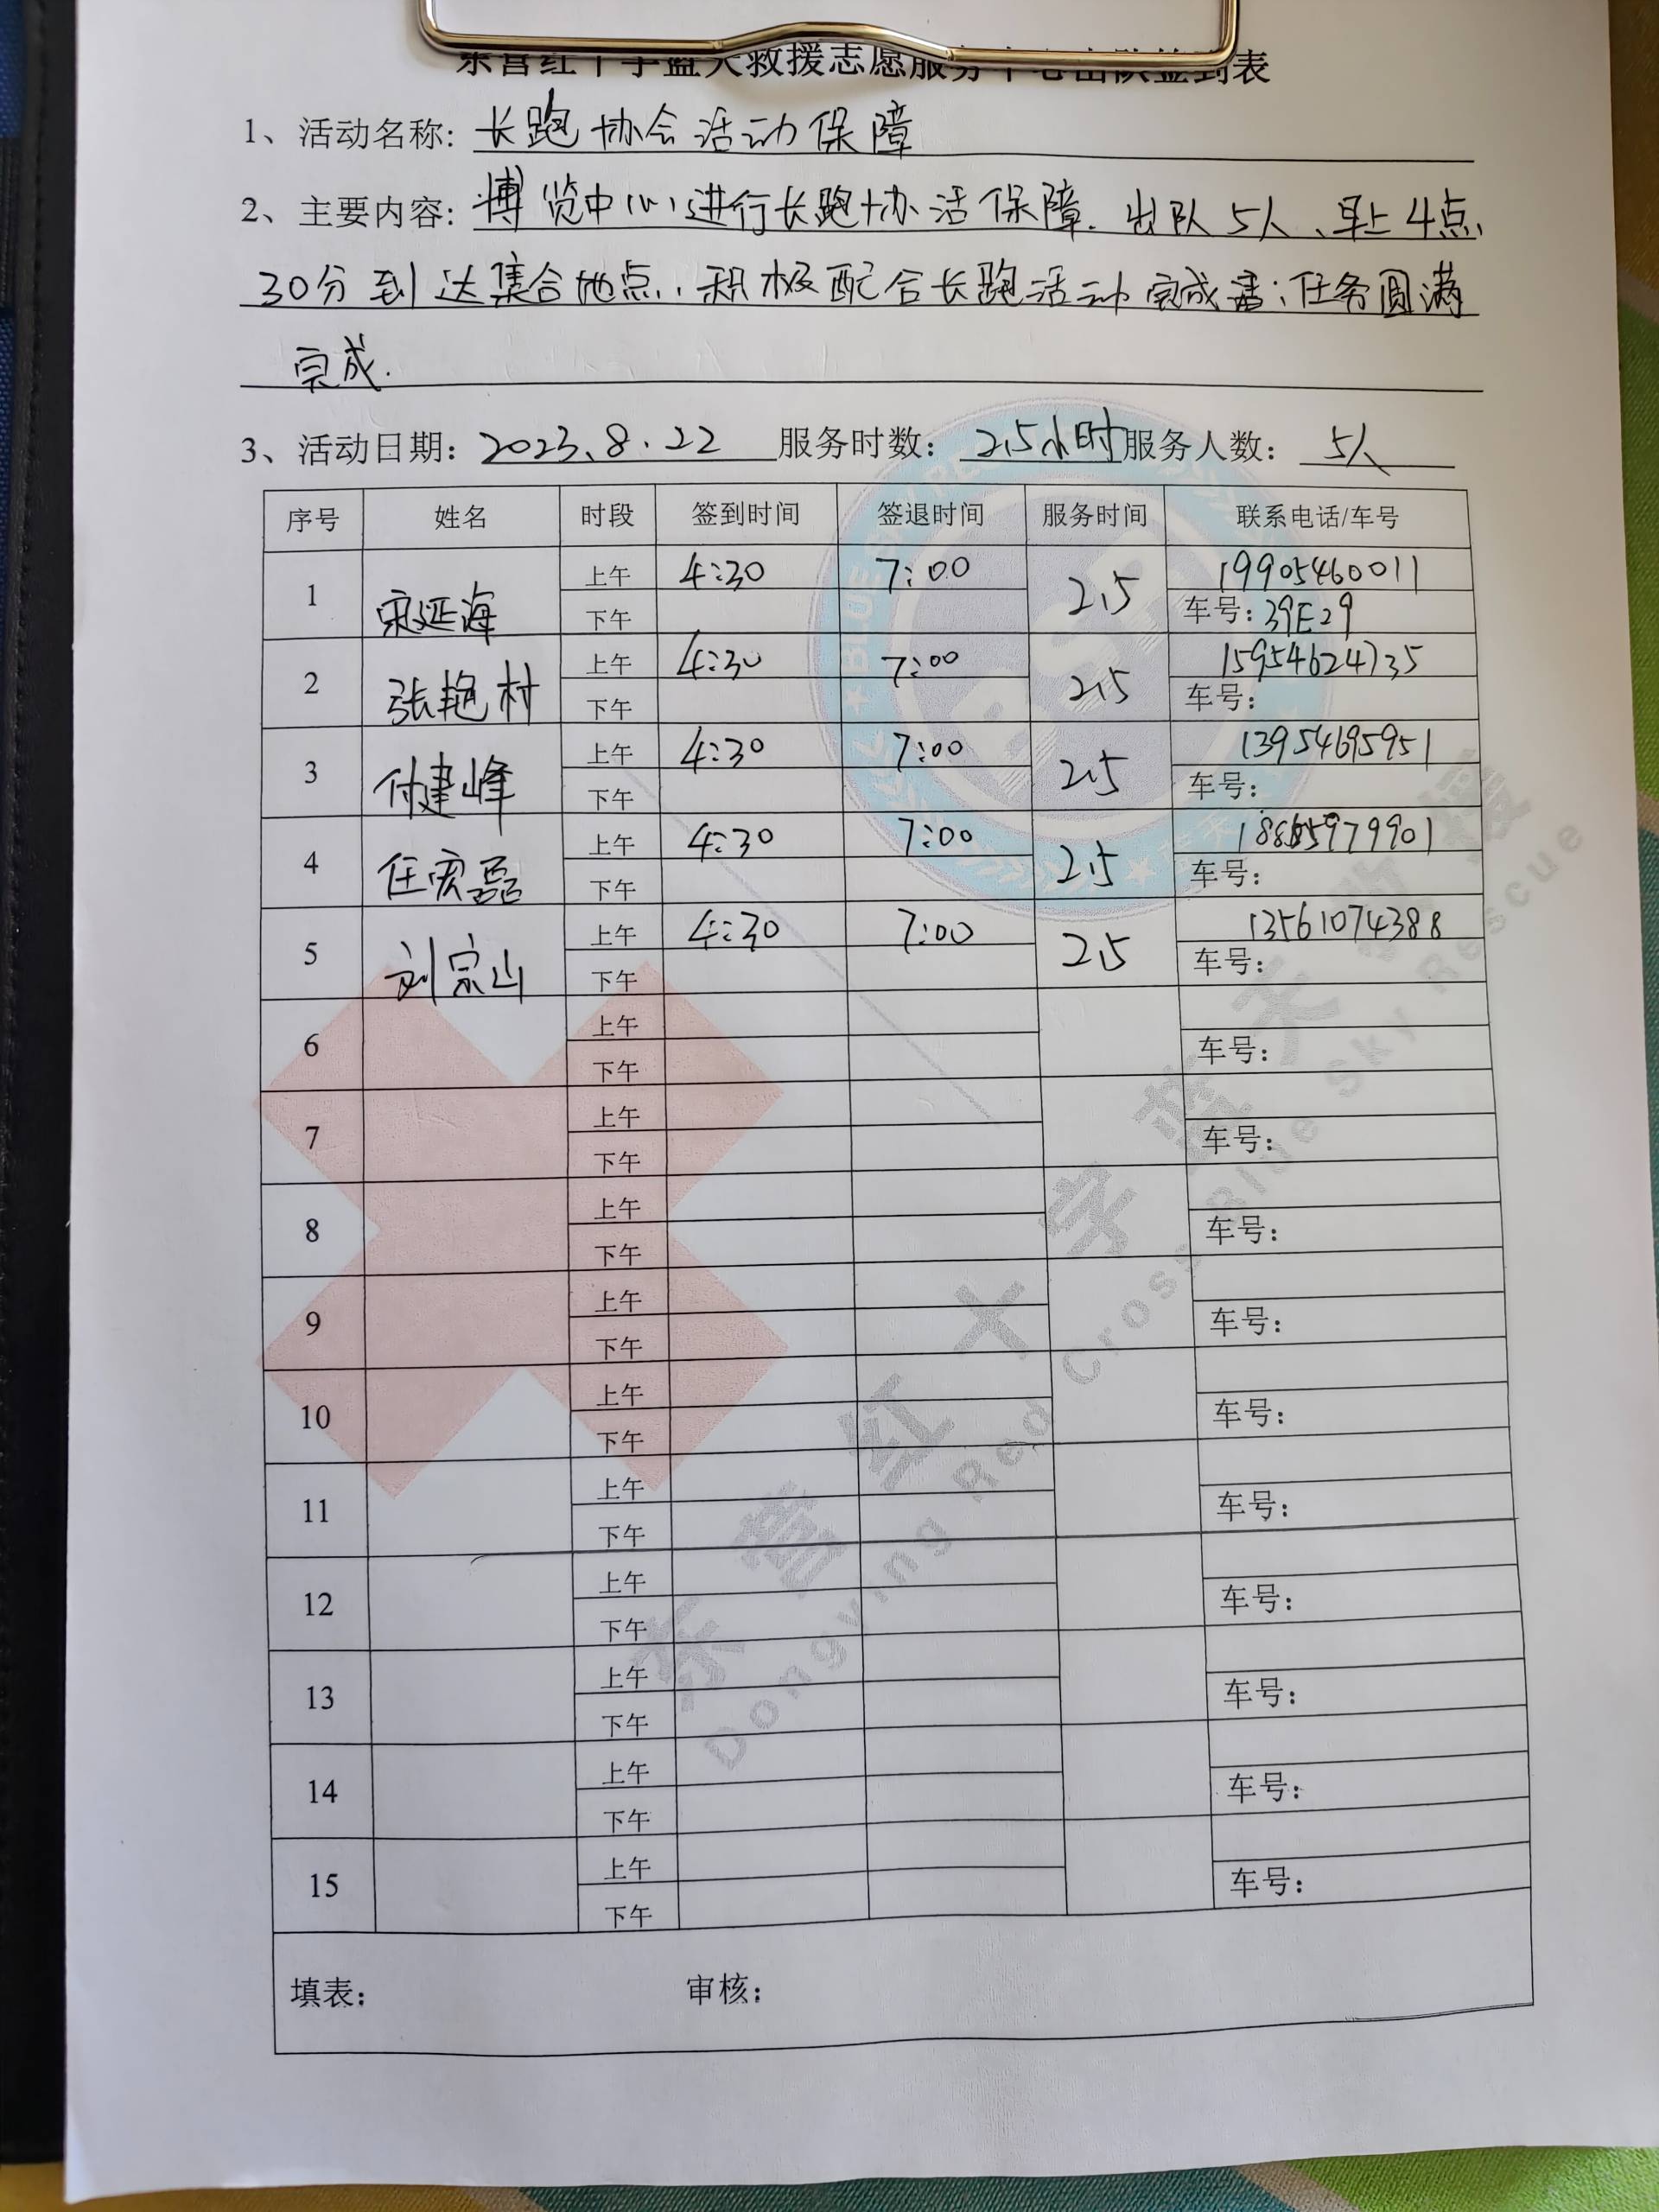 东营红十字蓝天救援志愿服务中心出队签到表
1、活动名称: 长跑协会活动保障
2、主要内容: 博览中心进行长跑协办活保障. 出队5人、早上4点
30分到达集合地点. 积极配合长跑活动完成 任务圆满
完成.
3、活动日期: 2023.8.22 服务时数: 2.5小时 服务人数: 5人
序号 姓名 时段 签到时间 签退时间 服务时间 联系电话/车号
1 宋延海 上午 4:30 7:00 2.5 19905460011
下午 车号: 39E29
2 张艳村 上午 4:30 7:00 2.5 15954624735
下午 车号:
3 付建峰 上午 4:30 7:00 2.5 13954695951
下午 车号:
4 任宪磊 上午 4:30 7:00 2.5 18865979901
下午 车号:
5 刘宗山 上午 4:30 7:00 2.5 13561074388
下午 车号:
6 上午
下午 车号:
7 上午
下午 车号:
8 上午
下午 车号:
9 上午
下午 车号:
10 上午
下午 车号:
11 上午
下午 车号:
12 上午
下午 车号:
13 上午
下午 车号:
14 上午
下午 车号:
15 上午
下午 车号:
填表: 审核:
东营红十字蓝天救援
Dongying Red Cross Blue Sky Rescue